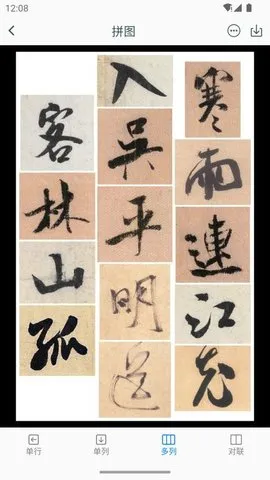 12:08
拼图
寒雨連江
入吳平明送
客林山孤
单行 单列 多列 对联